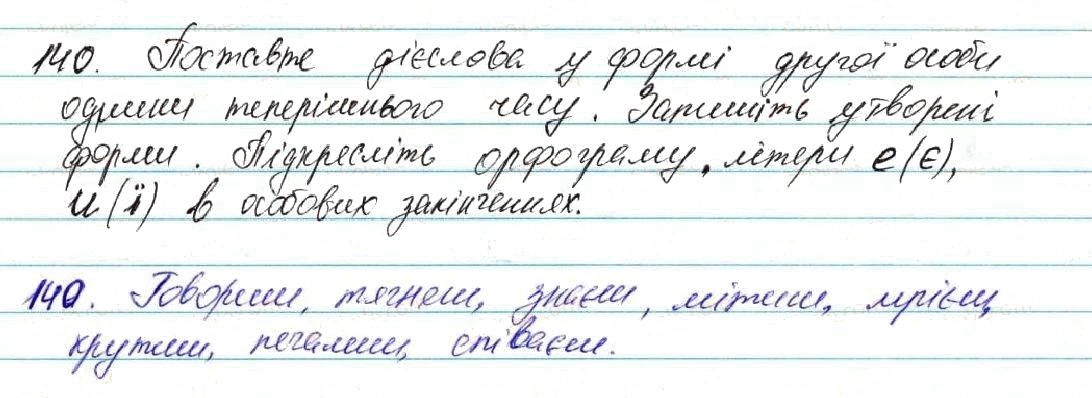 140. Поставте дієслова у формі другої особи
однини теперішнього часу. Запишіть утворені
форми. Підкресліть орфограму, літери е(є),
и(ї) в особових закінченнях.
140. Говориш, тягнеш, знаєш, мітиш, мрієш,
крутиш, печалиш, співаєш.